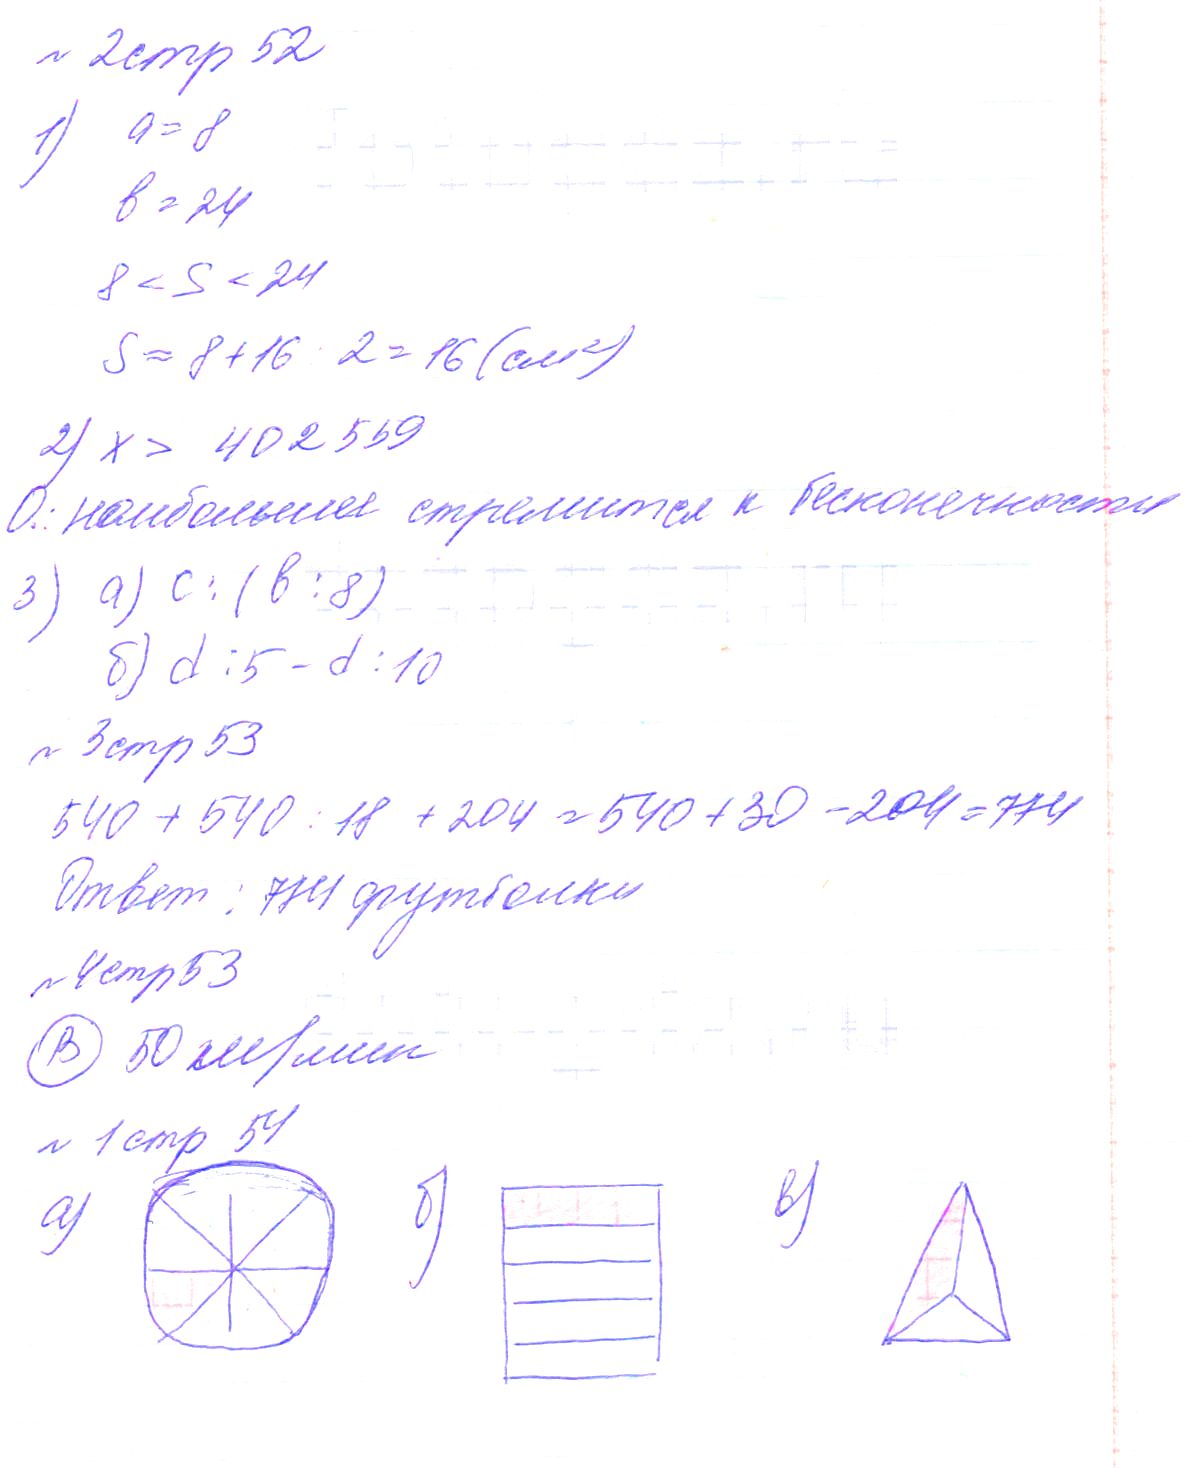 ~ 2стр 52
1) a = 8
b = 24
8 < S < 24
S ≈ 8 + 16 : 2 = 16 (см²)
2) x > 402559
О.: наибольшее стремится к бесконечности
3) а) c : (b : 8)
б) d : 5 - d : 10
~ 3стр 53
540 + 540 : 18 + 204 = 540 + 30 - 204 = 774
Ответ : 774 футболки
~ 4стр 53
В 50 км/мин
~ 1стр 54
а) б) в)